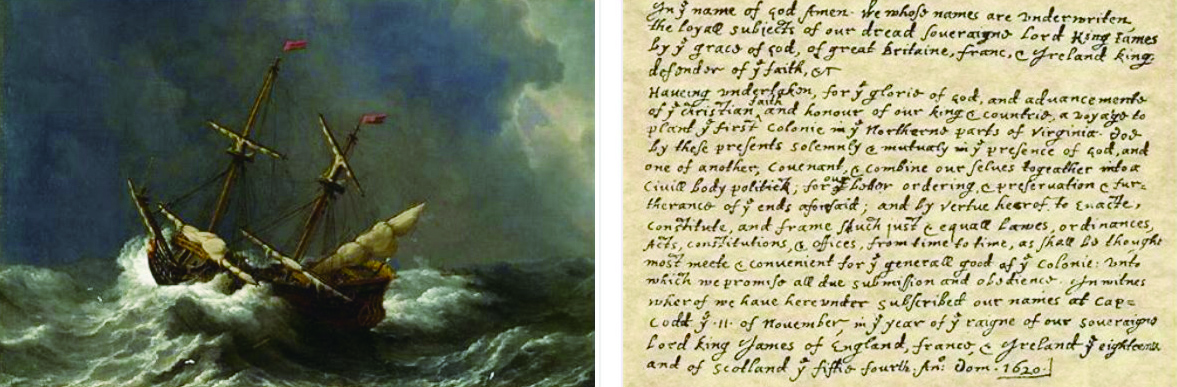 In yͤ name of god Amen. We whose names are underwriten,
the loyall subjects of our dread soveraigne Lord King James
by yͤ grace of god, of great Britaine, franc, & Ireland king,
defender of yͤ faith, &c
Haveing undertaken, for yͤ glorie of god, and advancemente
of yͤ christian faith and honour of our king & countrie, a voyage to
plant yͤ first colonie in yͤ Northerne parts of virginia. doe
by these presents solemnly & mutualy in yͤ presence of god, and
one of another, covenant, & combine our selves togeather into a
Civill body politick; for our better ordering, & preservation & fur=
therance of yͤ ends aforesaid; and by vertue hearof to enacte,
constitute, and frame shuch just & equall Lawes, ordinances,
Acts, constitutions, & offices, from time to time, as shall be thought
most meete & convenient for yͤ generall good of yͤ Colonie: unto
which we promise all due submission and obedience. In witnes
wherof we have hereunder subscribed our names at Cap=
Codd yͤ .11. of November, in yͤ year of yͤ raigne of our soveraigne
Lord king James of England, france, & Ireland yͤ eighteenth
and of Scotland yͤ fiftie fourth. An°: Dom. 1620.